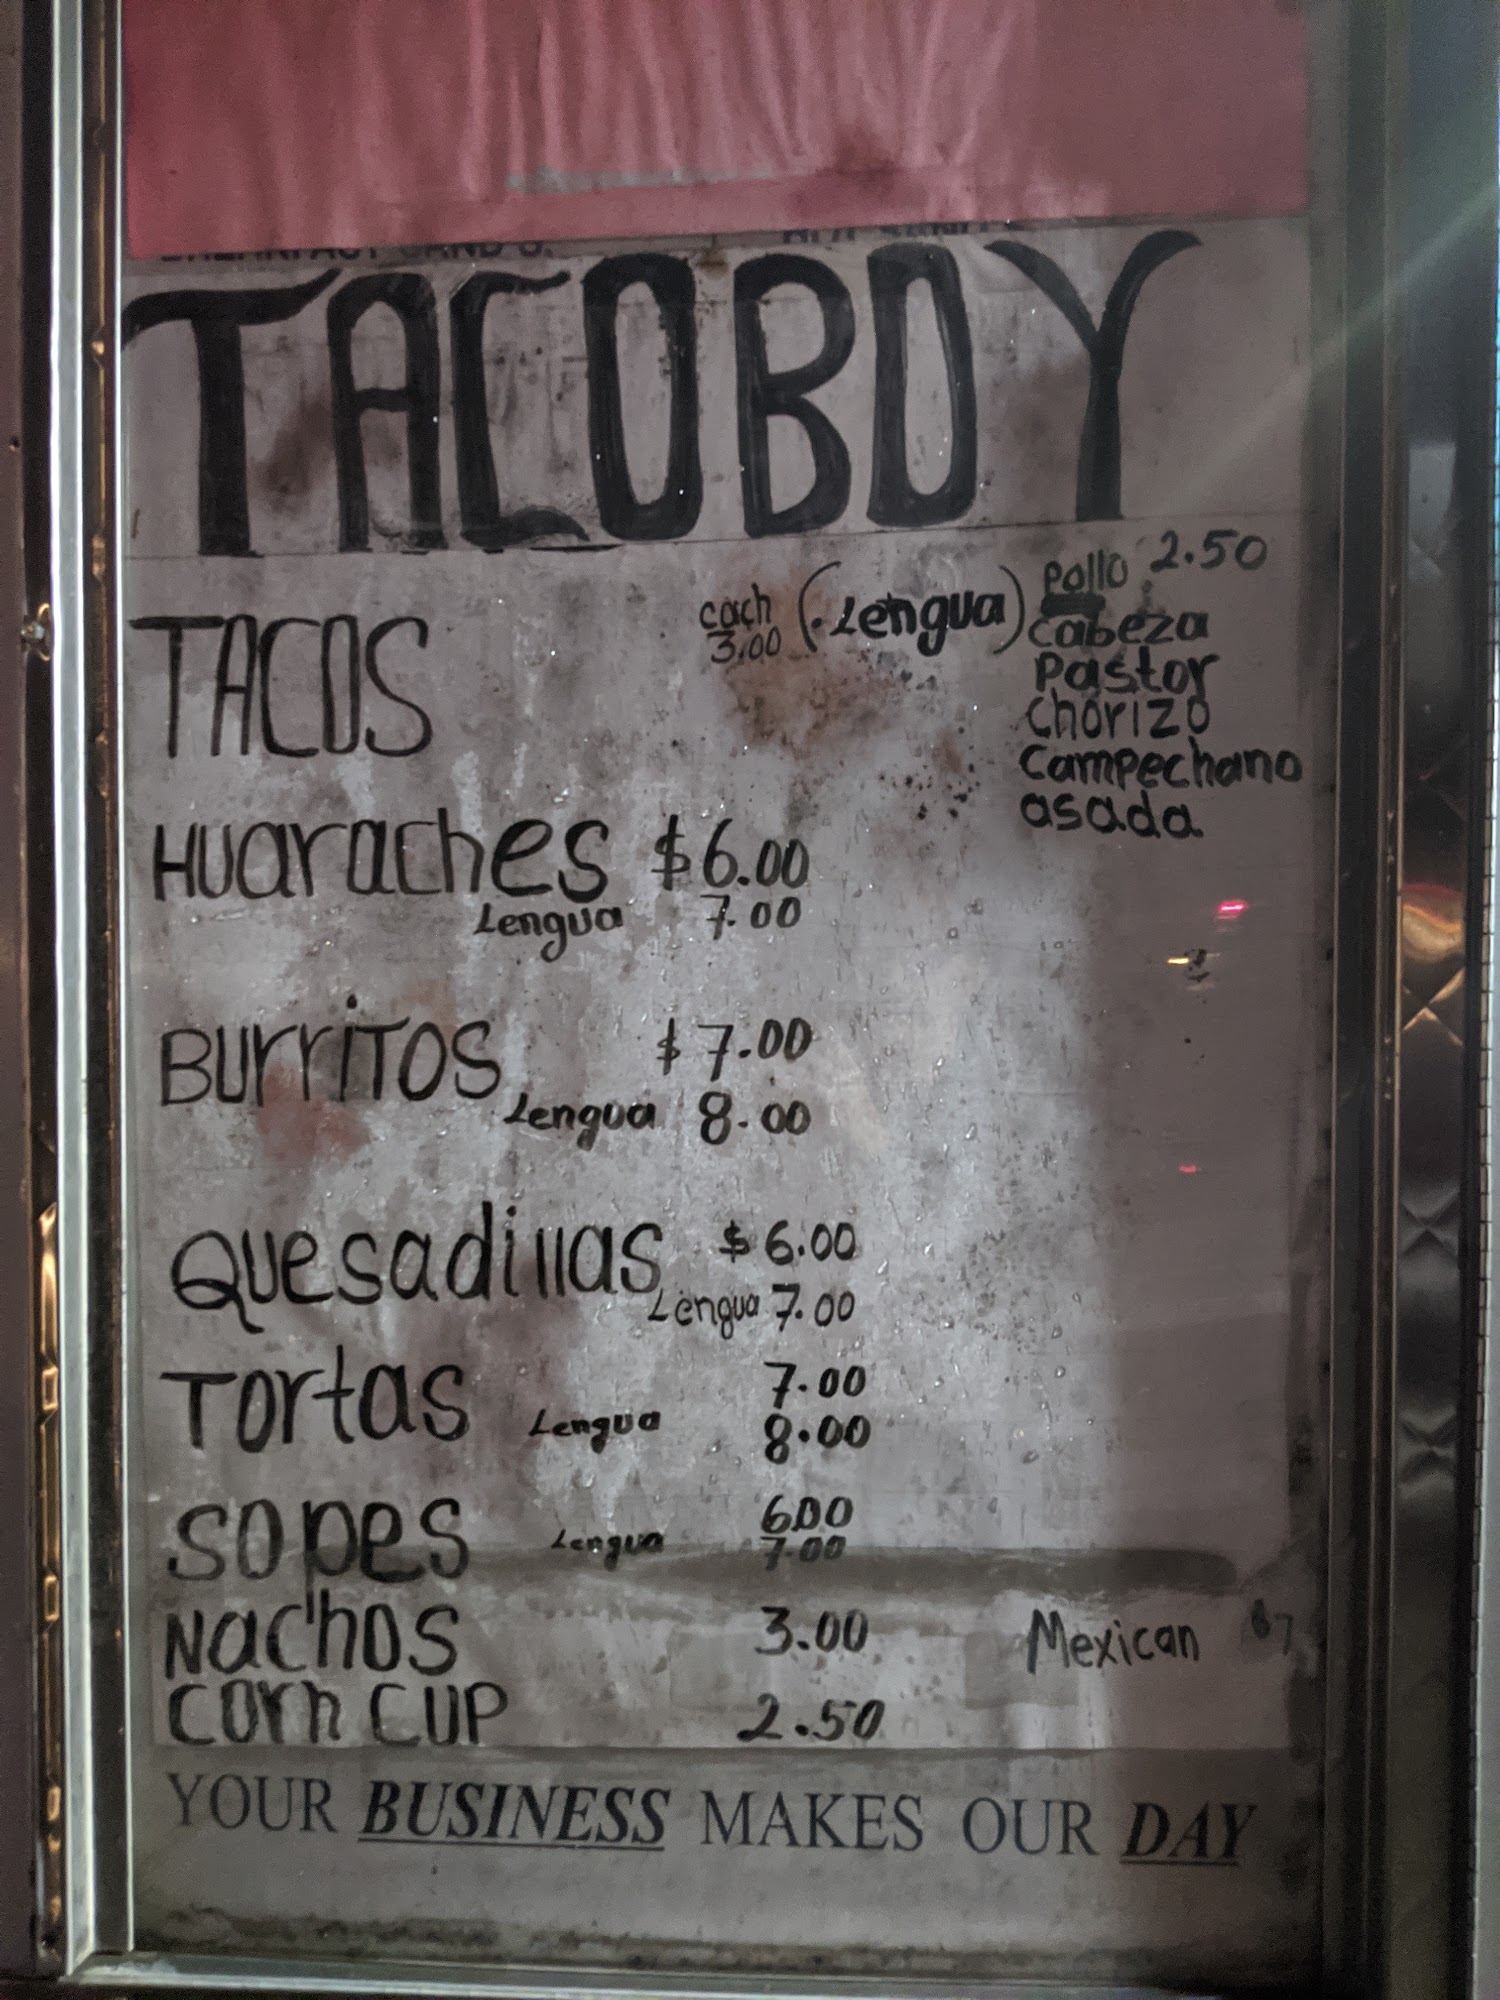 TACOBOY
TACOS
cach
3.00
(Lengua)
Pollo 2.50
cabeza
Pastor
chorizo
campechano
asada
Huaraches $6.00
Lengua 7.00
BurriTOS $7.00
Lengua 8.00
Quesadillas $6.00
Lengua 7.00
Tortas 7.00
Lengua 8.00
Sopes 6.00
Lengua 7.00
Nachos 3.00 Mexican $7
Corn CUP 2.50
YOUR BUSINESS MAKES OUR DAY